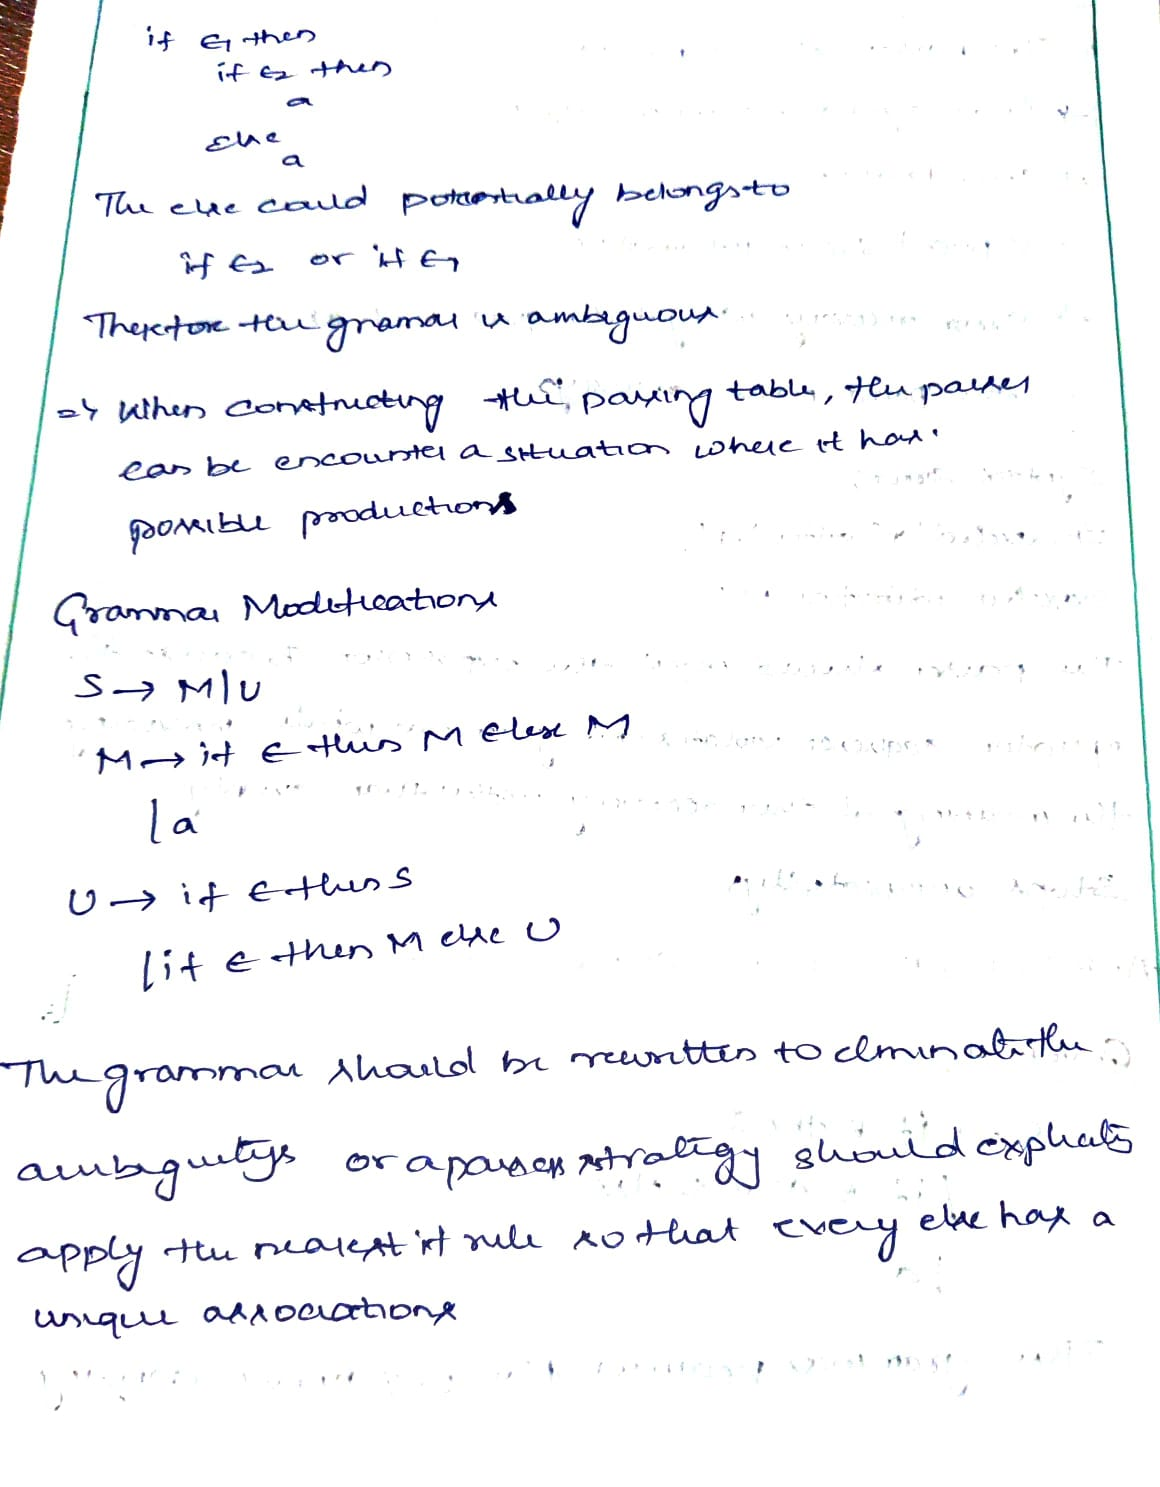 if E1 then
if E2 then
a
Else
a
The else could potentially belongs to
if E2 or if E1
Therefore the gramar is ambiguous.
=> When constructing the parsing table, the parser
can be encounter a situation where it has
possible productions
Grammar Modifications
S → M|U
M → if E then M Else M
|a
U → if E then S
|if E then M else U
The grammar should be rewritten to elminate the
ambiguitys or a parser strategy should explicity
apply the nearest if rule so that every else has a
unique associations